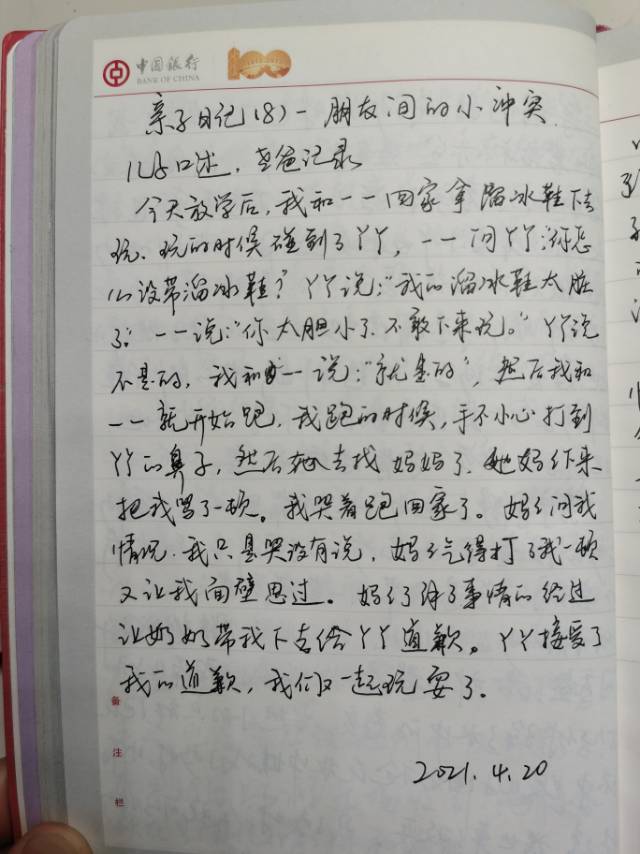 中国银行
BANK OF CHINA
100
亲子日记(8)－朋友间的小冲突
儿子口述，老爸记录
今天放学后，我和一一回家拿溜冰鞋下去
玩、玩的时候碰到了丫丫，一一问丫丫：你怎
么没带溜冰鞋？丫丫说："我的溜冰鞋太脏
了"一一说："你太胆小了不敢下来说。"丫丫说
不是的，我和一一说："就是的"，然后我和
一一就开始跑，我跑的时候，手不小心打到
丫丫的鼻子，然后她去找妈妈了，她妈下来
把我骂了一顿。我哭着跑回家了。妈妈问我
情况，我只是哭没有说，妈妈气得打了我一顿
又让我面壁思过。妈妈了解了事情的经过
让奶奶带我下去给丫丫道歉。丫丫接受了
我的道歉，我们又一起玩耍了。
2021.4.20
备
注
栏